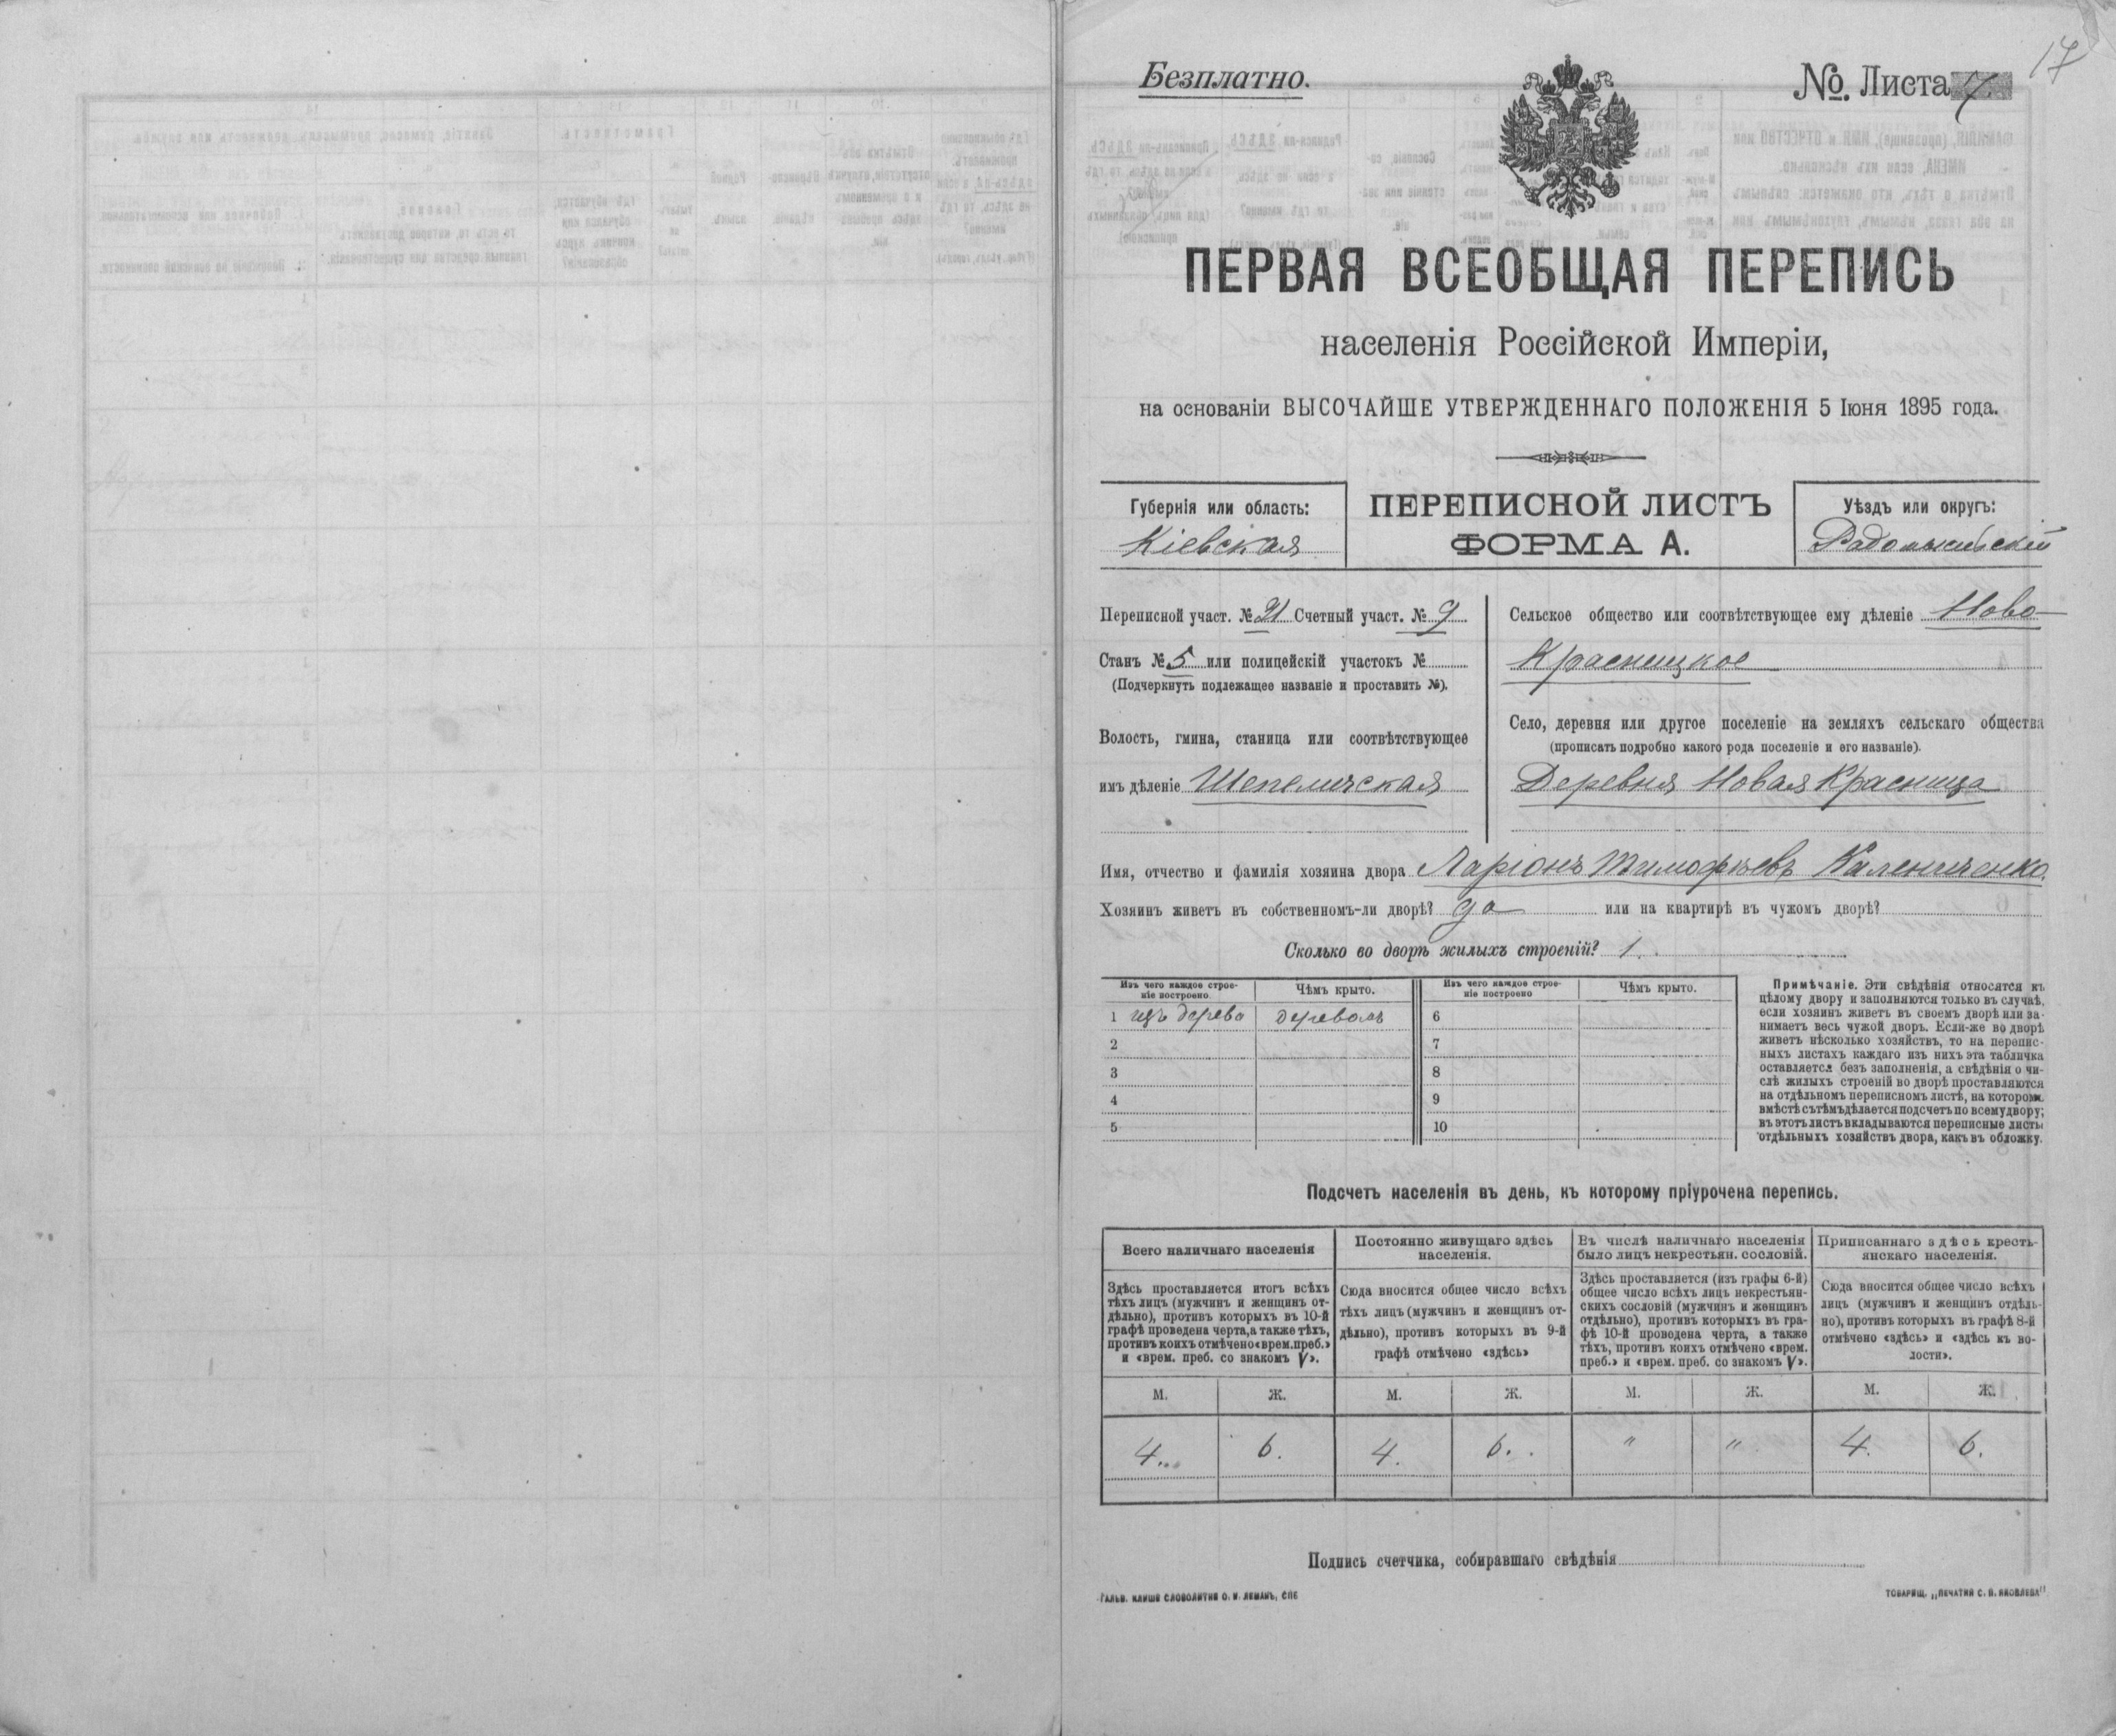 17
Безплатно.
№ Листа 7.
ПЕРВАЯ ВСЕОБЩАЯ ПЕРЕПИСЬ
населенія Россійской Имперіи,
на основаніи ВЫСОЧАЙШЕ УТВЕРЖДЕННАГО ПОЛОЖЕНІЯ 5 Іюня 1895 года.
Губернія или область:
Кіевская
ПЕРЕПИСНОЙ ЛИСТЪ
ФОРМА А.
Уѣздъ или округъ:
Радомысльскій
Переписной участ. № 21 Счетный участ. № 9
Станъ № 5 или полицейскій участокъ №
(Подчеркнуть подлежащее названіе и проставить №).
Волость, гмина, станица или соотвѣтствующее
имъ дѣленіе Шепеличская
Сельское общество или соотвѣтствующее ему дѣленіе Ново-
Красницкое
Село, деревня или другое поселеніе на земляхъ сельскаго общества
(прописать подробно какого рода поселеніе и его названіе).
Деревня Новая Красница
Имя, отчество и фамилія хозяина двора Ларіонъ Тимофѣевъ Калениченко.
Хозяинъ живетъ въ собственномъ-ли дворѣ? да или на квартирѣ въ чужомъ дворѣ?
Сколько во дворѣ жилыхъ строеній? 1.
Изъ чего каждое строе-
ніе построено.
Чѣмъ крыто.
Изъ чего каждое строе-
ніе построено
Чѣмъ крыто.
1 изъ дерева деревомъ 6
2 7
3 8
4 9
5 10
Примѣчаніе. Эти свѣдѣнія относятся къ
цѣлому двору и заполняются только въ случаѣ,
если хозяинъ живетъ въ своемъ дворѣ или за-
нимаетъ весь чужой дворъ. Если-же во дворѣ
живетъ нѣсколько хозяйствъ, то на перепис-
ныхъ листахъ каждаго изъ нихъ эта табличка
оставляется безъ заполненія, а свѣдѣнія о чи-
слѣ жилыхъ строеній во дворѣ проставляются
на отдѣльномъ переписномъ листѣ, на которомъ
вмѣстѣ съ тѣмъ дѣлается подсчетъ по всему двору;
въ этотъ листъ вкладываются переписные листы
отдѣльныхъ хозяйствъ двора, какъ въ обложку.
Подсчетъ населенія въ день, къ которому пріурочена перепись.
Всего наличнаго населенія
Здѣсь проставляется итогъ всѣхъ
тѣхъ лицъ (мужчинъ и женщинъ от-
дѣльно), противъ которыхъ въ 10-й
графѣ проведена черта, а также тѣхъ,
противъ коихъ отмѣчено «врем. преб.»
и «врем. преб. со знакомъ V».
Постоянно живущаго здѣсь
населенія.
Сюда вносится общее число всѣхъ
тѣхъ лицъ (мужчинъ и женщинъ от-
дѣльно), противъ которыхъ въ 9-й
графѣ отмѣчено «здѣсь»
Въ числѣ наличнаго населенія
было лицъ некрестьян. сословій.
Здѣсь проставляется (изъ графы 6-й)
общее число всѣхъ лицъ некрестьян-
скихъ сословій (мужчинъ и женщинъ
отдѣльно), противъ которыхъ въ гра-
фѣ 10-й проведена черта, а также
тѣхъ, противъ коихъ отмѣчено «врем.
преб.» и «врем. преб. со знакомъ V».
Приписаннаго здѣсь кресть-
янскаго населенія.
Сюда вносится общее число всѣхъ
лицъ (мужчинъ и женщинъ отдѣль-
но), противъ которыхъ въ графѣ 8-й
отмѣчено «здѣсь» и «здѣсь къ во-
лости».
М. Ж. М. Ж. М. Ж. М. Ж.
4. 6. 4. 6. " " 4. 6.
Подпись счетчика, собиравшаго свѣдѣнія
ГАЛЬВ. КЛИШЕ СЛОВОЛИТНИ О. И. ЛЕМАНЪ, СПБ
ТОВАРИЩ. „ПЕЧАТНЯ С. П. ЯКОВЛЕВА"